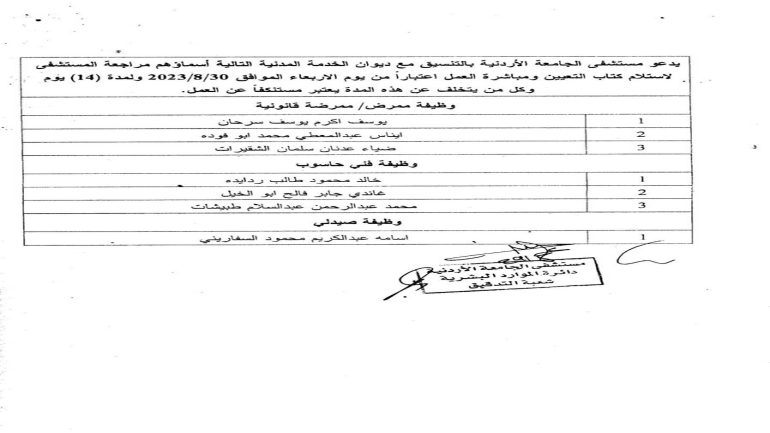 يدعو مستشفى الجامعة الأردنية بالتنسيق مع ديوان الخدمة المدنية التالية أسماؤهم مراجعة المستشفى
لاستلام كتاب التعيين ومباشرة العمل اعتباراً من يوم الاربعاء الموافق 2023/8/30 ولمدة (14) يوم
وكل من يتخلف عن هذه المدة يعتبر مستنكفاً عن العمل.
وظيفة ممرض/ ممرضة قانونية
1 يوسف اكرم يوسف سرحان
2 ايناس عبدالمعطي محمد ابو فوده
3 ضياء عدنان سلمان الشقيرات
وظيفة فني حاسوب
1 خالد محمود طالب ردايده
2 غاندي جابر فالح ابو الخيل
3 محمد عبدالرحمن عبدالسلام طبيشات
وظيفة صيدلي
1 اسامه عبدالكريم محمود السفاريني
مستشفى الجامعة الأردنية
دائرة الموارد البشرية
شعبة التدقيق